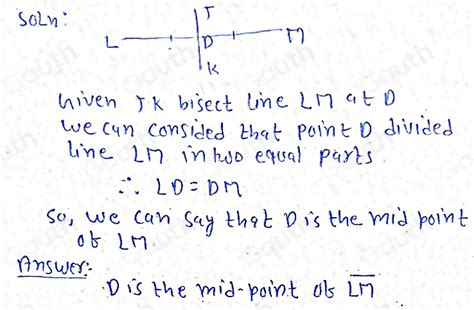 Soln:
J
L D M
K
Given JK bisect line LM at D
we can consided that point D divided
line LM in two equal parts.
∴ LD = DM
So, we can say that D is the mid point
of LM.
Answer:-
D is the mid-point of L̅M̅